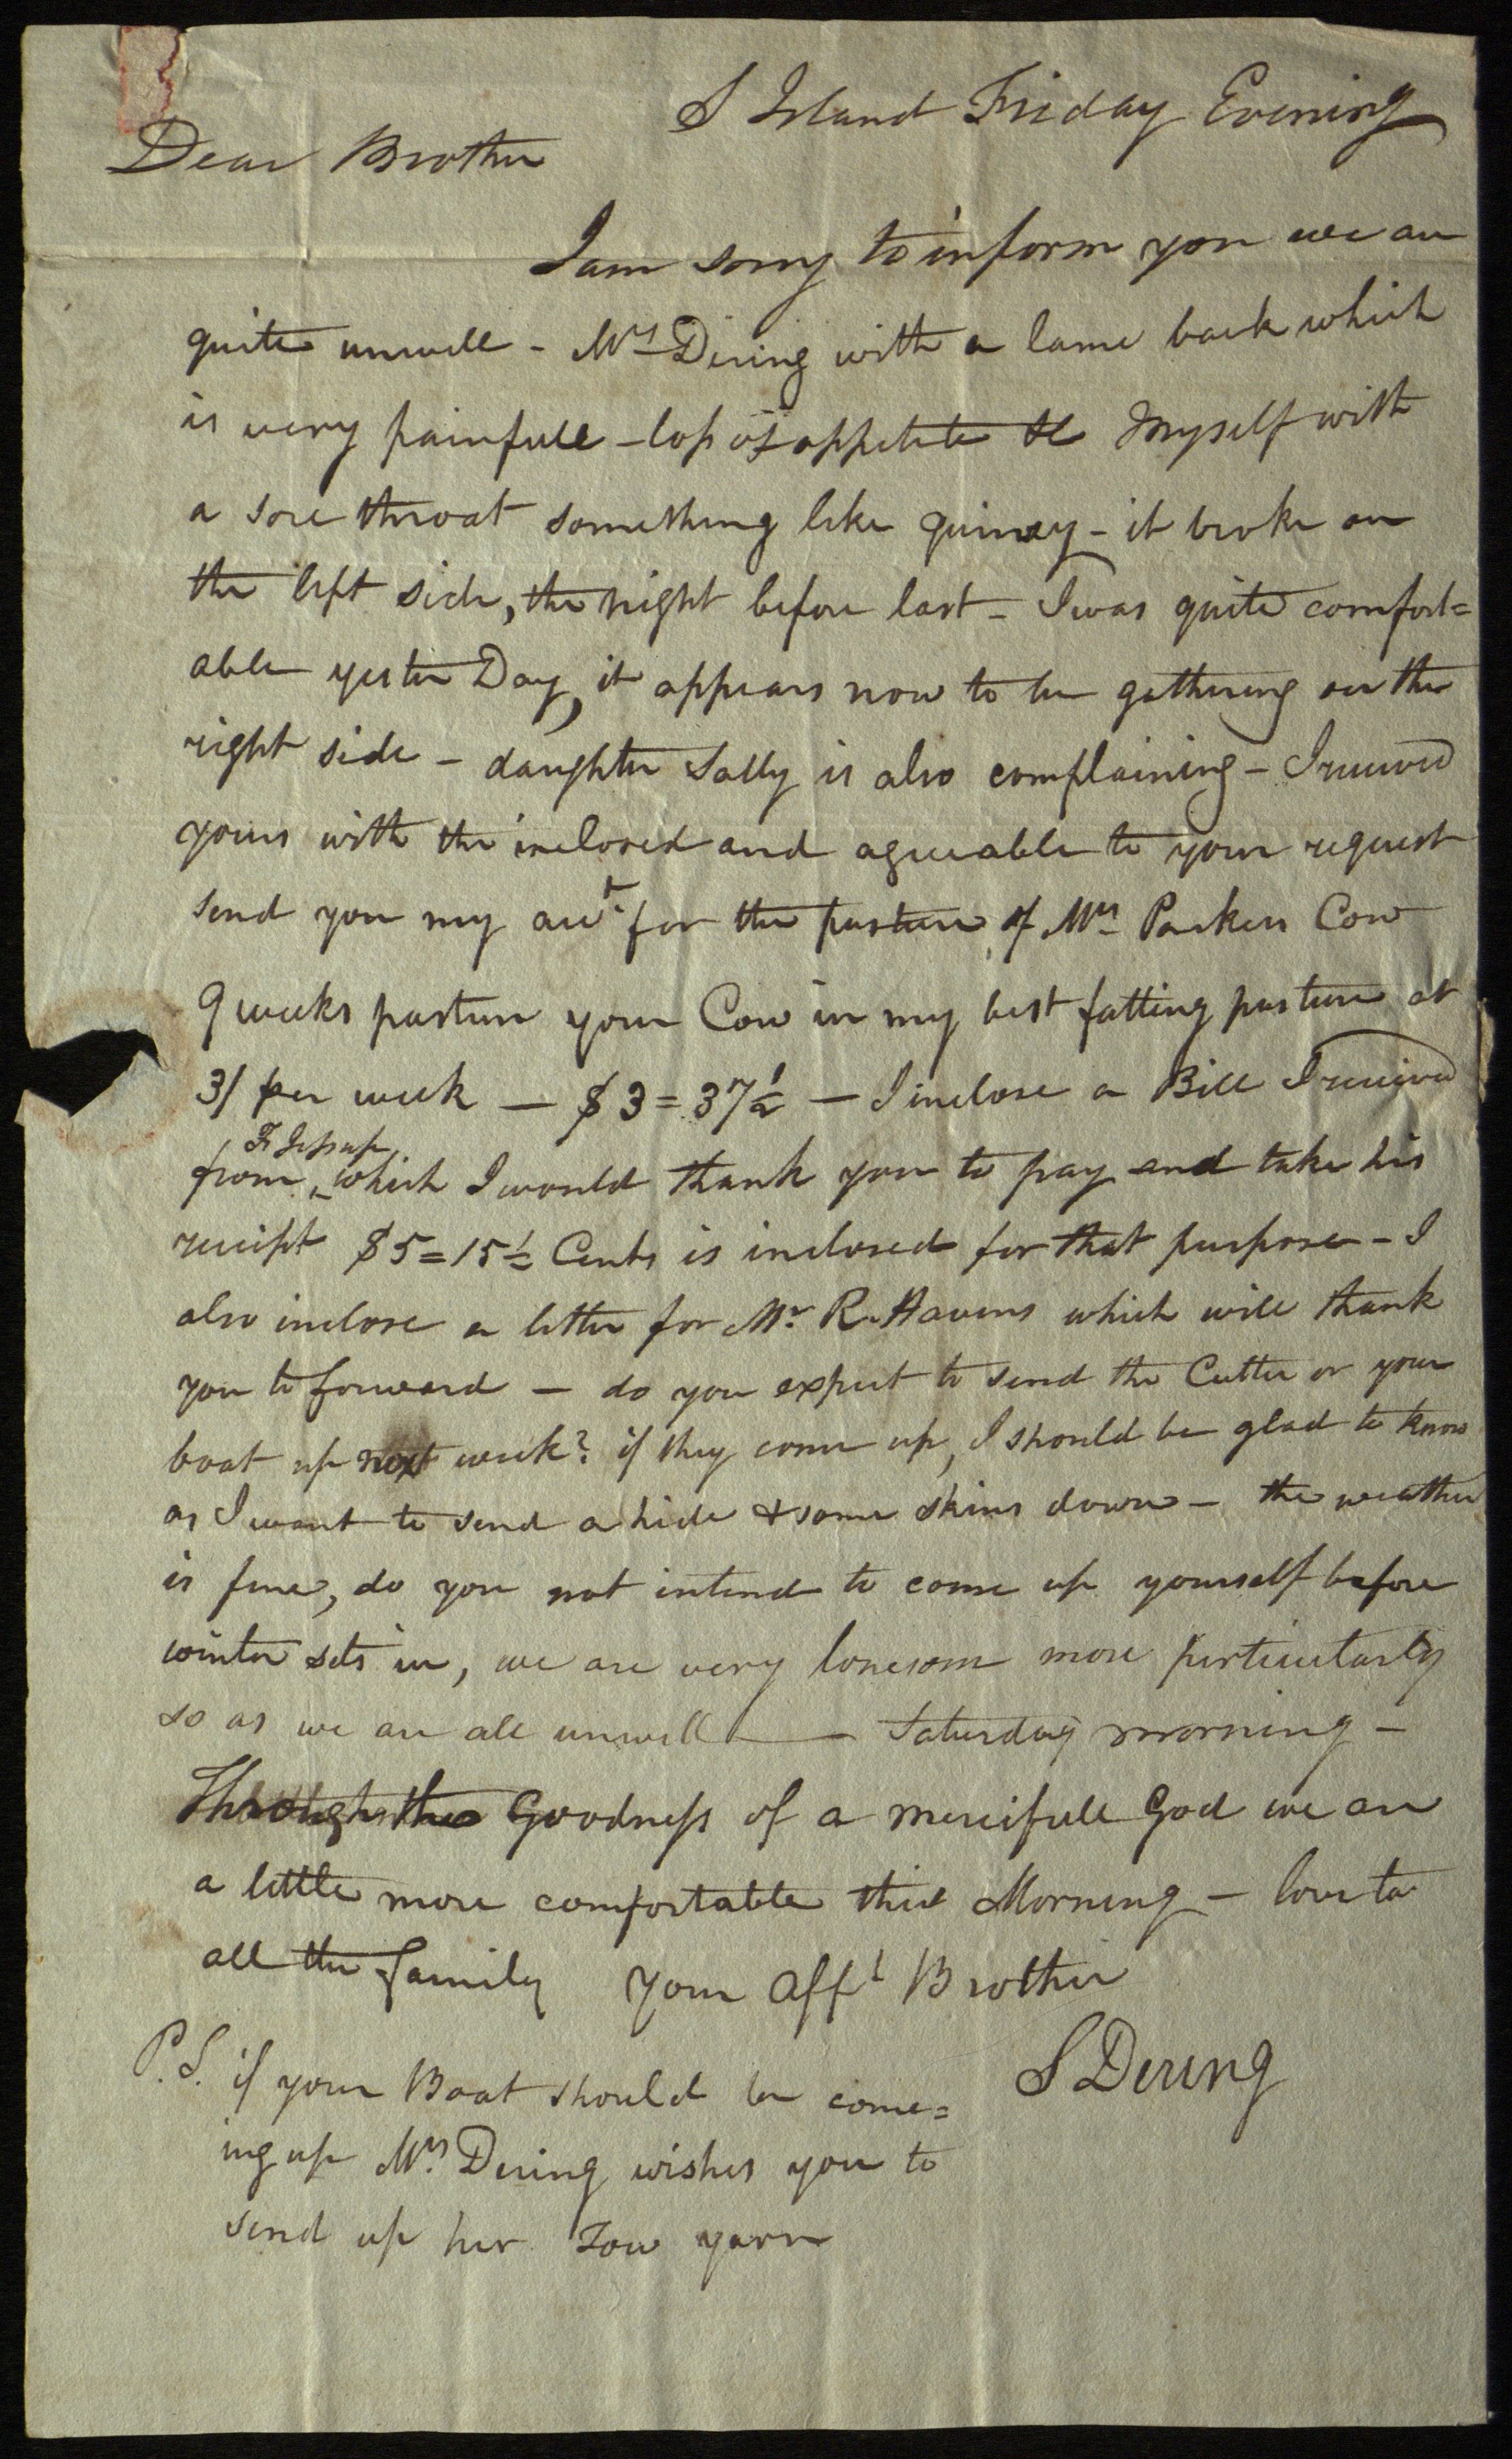 S Island Friday Evening
Dear Brother
I am sorry to inform you we are
quite unwell - Mrs Dering with a lame back which
is very painfull - loss of appetite &c Myself with
a sore throat something like quinsy - it broke on
the left side, the night before last - I was quite comfort=
able yester Day, it appears now to be gathering on the
right side - daughter Sally is also complaining - I received
yours with the inclosed and agreeable to your request
send you my acct. for the pasture of Mrs Parkers Cow
9 weeks pasture your Cow in my best fatting pasture at
3/ per week — $3=37½ — I inclose a Bill I received
Fr Jessup
from which I would thank you to pay and take his
receipt $5=15½ Cents is inclosed for that purpose - I
also inclose a letter for Mr. R. Havens which will thank
you to forward — do you expect to send the Cutter or your
boat up next week? if they come up, I should be glad to know
as I want to send a hide & some skins down - the weather
is fine, do you not intend to come up yourself before
winter sets in, we are very lonesom more perticularly
so as we are all unwell — Saturday morning -
Through the Goodness of a mercifull God we are
a little more comfortable this Morning - love to
all the family your Afft Brother
S Dering
P.S. if your Boat should be come=
ing up Mrs. Dering wishes you to
send up her Tow yarn